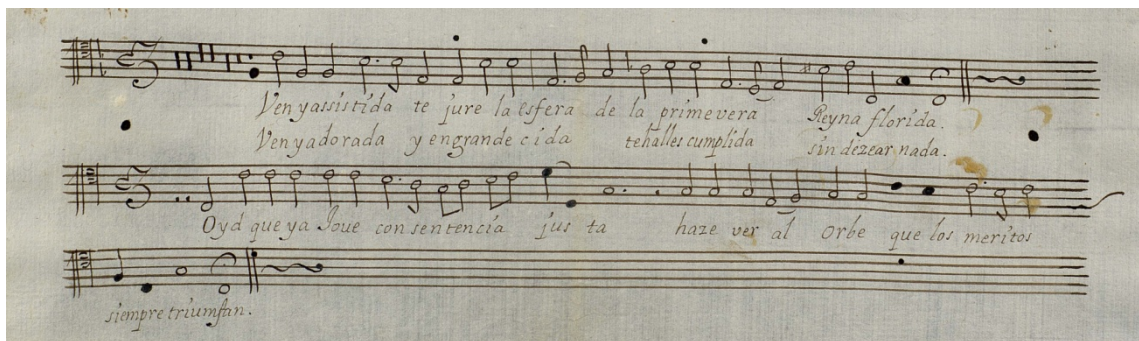 Ven yassistida te jure la esfera de la primevera Reyna florida.
Ven yadorada y engrandecida tehalles cumplida sin dezear nada.
Oyd que ya Jove con sentencia justa haze ver al Orbe que los meritos
siempre triumfan.